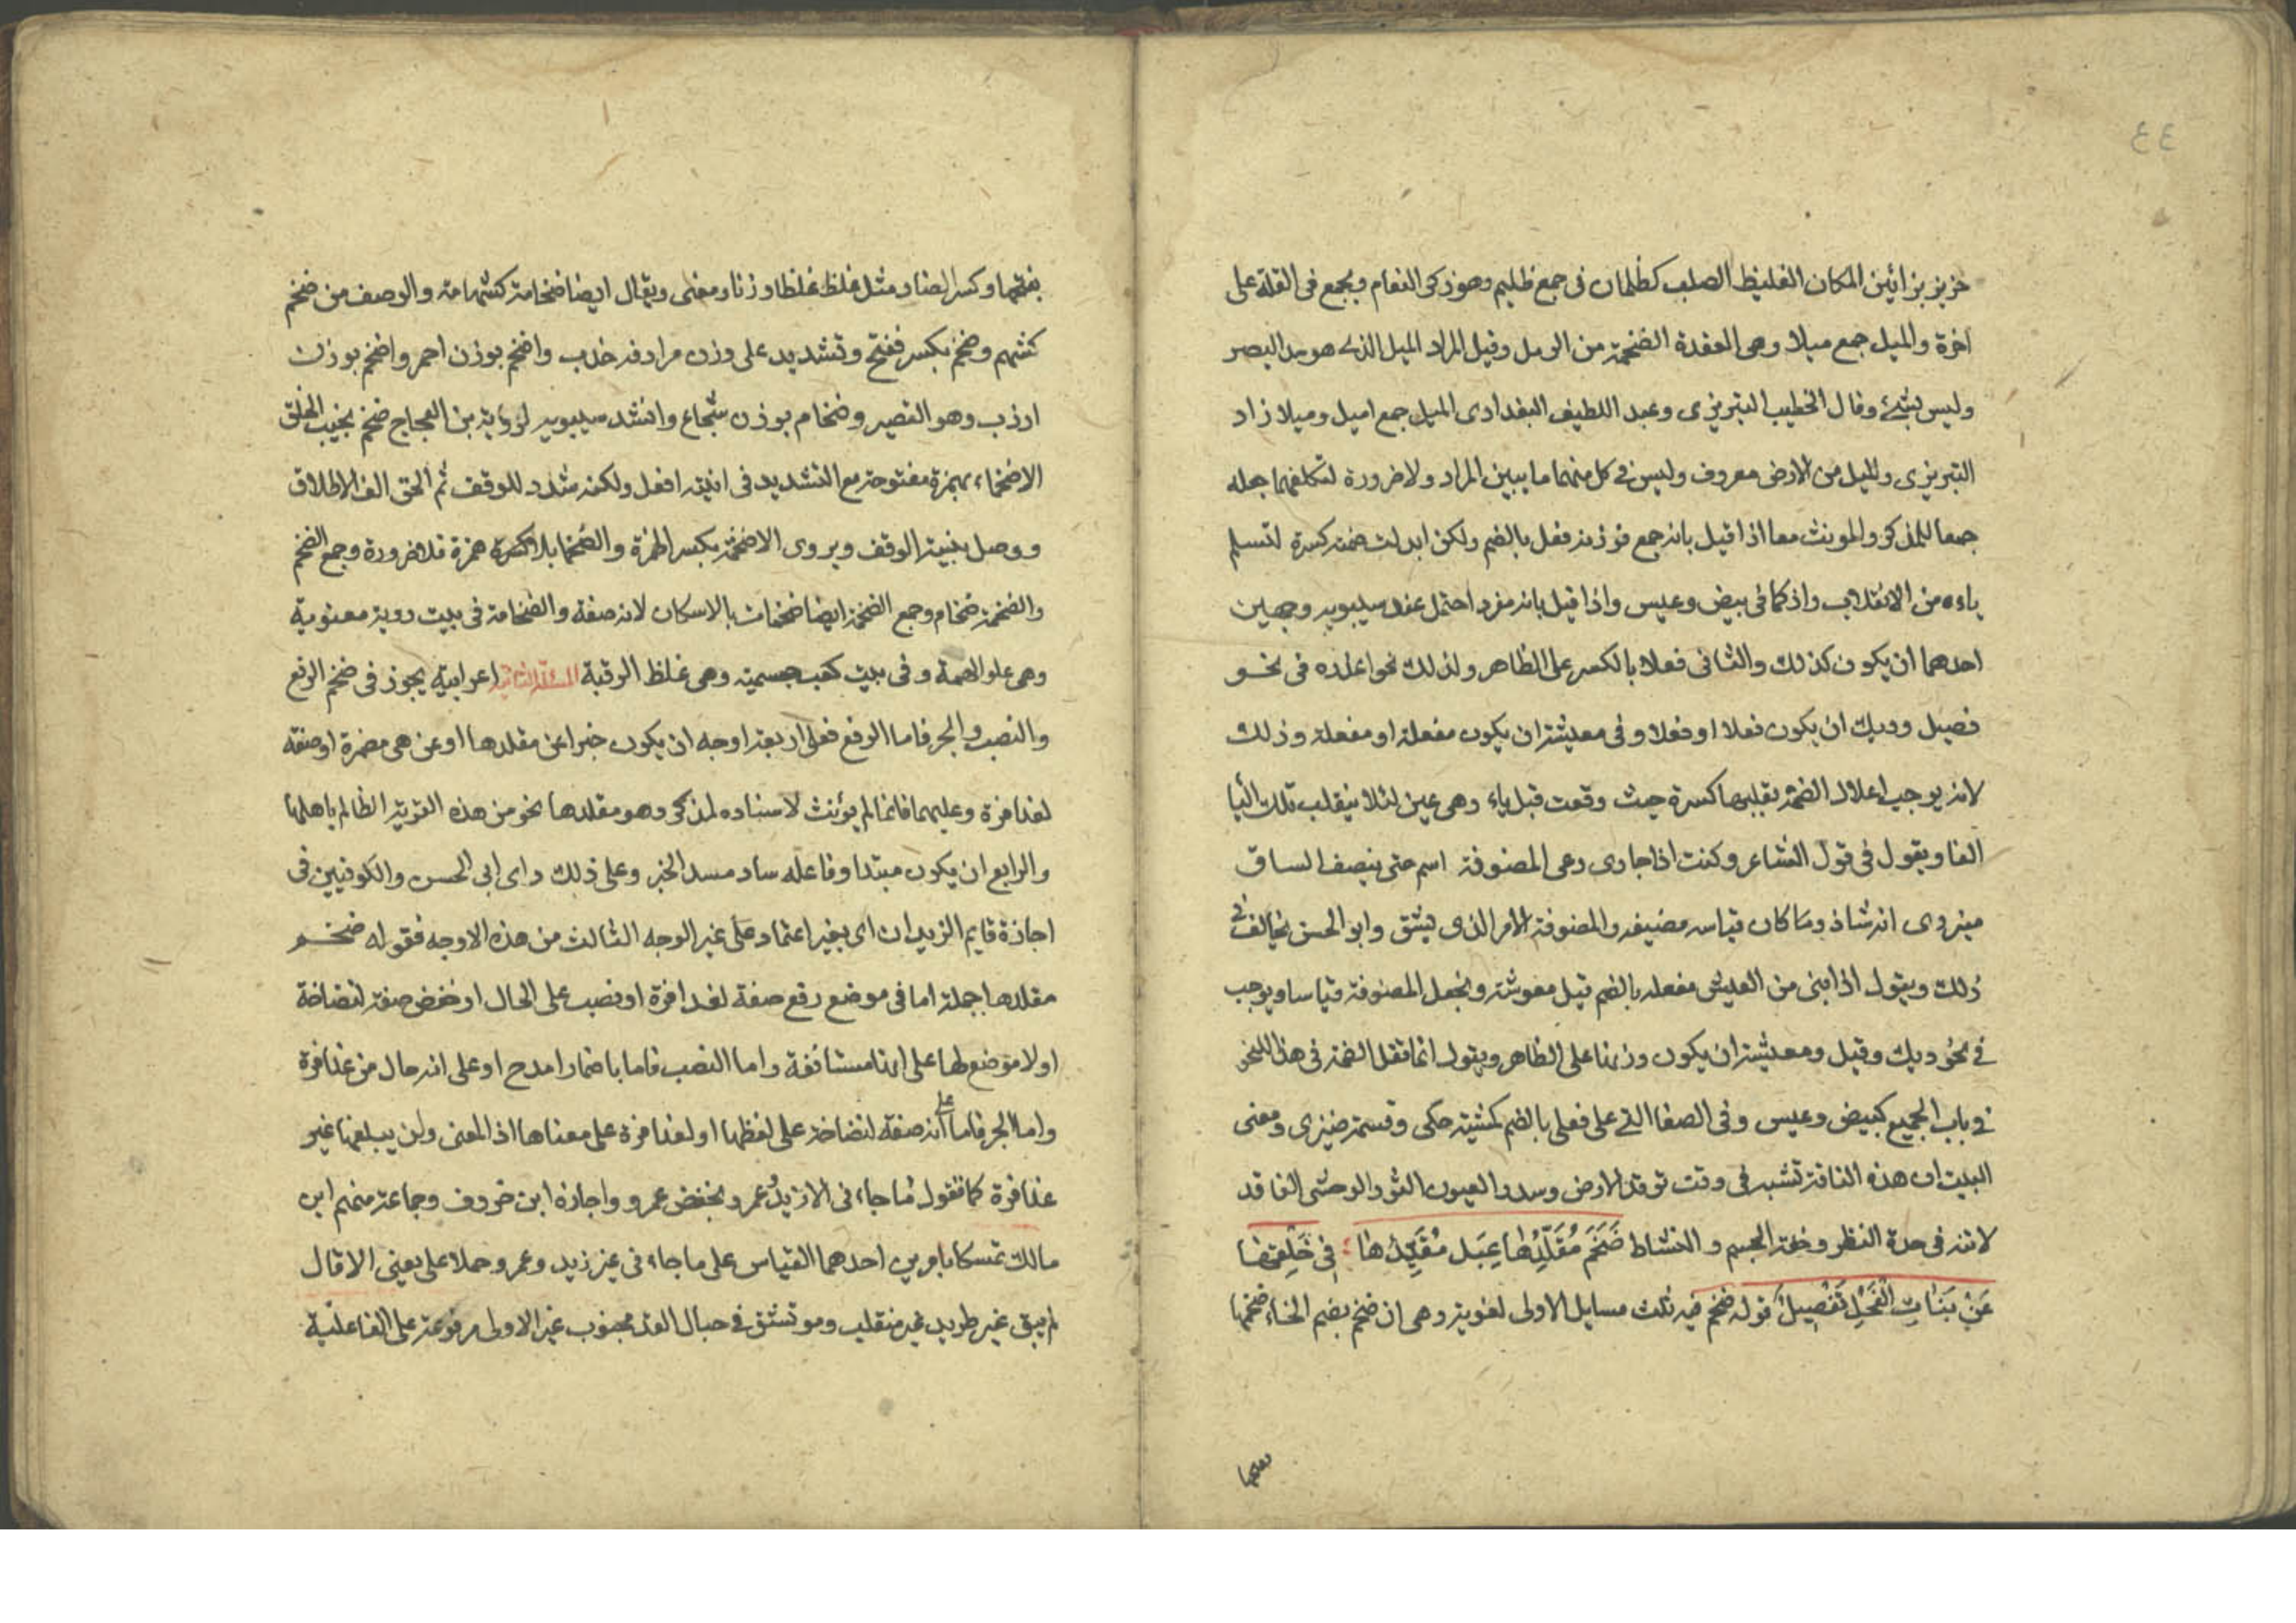 ٤٤
خزيز بزائين المكان الغليظ الصلب كظلمان في جمع ظليم وهو ذكر النعام ويجمع في القلة على
اخزة والميل جمع ميلا وهي العقدة الضخمة من الرمل وقيل المراد الميل الذي هو مد البصر
وليس بشئ وقال الخطيب التبريزي وعبد اللطيف البغدادي الميل جمع اميل وميلا زاد
التبريزي والميل من الارض معروف وليس في كل منهما ما يبين المراد ولا ضرورة لتكلفهما جعله
جمعا للمذكر والمونث معا اذا قيل بانه جمع فوزنه فعل بالضم ولكن ابدلت ضمته كسرة لتسلم
ياءه من الانقلاب واذ كما في بيض وعيس واذا قيل بانه مفرد احتمل عند سيبويه وجهين
احدهما ان يكون كذلك والثاني فعلا بالكسر على الظاهر ولذلك نحوا عنده في نحو
فصيل وديك ان يكون فعلا او فعلا وفي معيشة ان يكون مفعلة او مفعلة وذلك
لانه يوجب اعلال الضمة بقلبها كسرة حيث وقعت قبل ياء وهي عين لئلا ينقلب تلك اليا
الفا ويقول في قول الشاعر وكنت اذا جاري دعى المضوفة اسم حتى ينصف الساق
ميزري انه شاذ وما كان قياسه مضيفه والمضوفة الامر الذي يشق وابو الحسن يخالف في
ذلك ويقول اذا بنى من العيش مفعله بالضم قيل معوشة ويجعل المضوفة قياسا ويوجب
في نحو ديك وقيل ومعيشة ان يكون وزنها على الظاهر ويقول انما تقل الضمة في هذا النحو
في باب الجمع كبيض وعيس وفي الصفا التي على فعلى بالضم كمشية حكى وقسمة ضيزى ومعنى
البيت ان هذه الناقة تشبه في وقت توقد الارض وسدد العيون الثور الوحشي الفاقد
لانثه في حدة النظر وخفة الجسم و النشاط ضَخْمَ مُقَلَّدُها عَبْل مُقَيَّدُها ؛ في خَلْقِهَا
عَنْ بَنَاتِ الفَحْلِ تَفْضِيلُ قوله ضخم فيه ثلث مسايل الاولى لغوية وهي ان ضخم بضم الخاء ضخما
بفتحها وكسر الضاد مثل غلظ غلظا وزنا ومعنى ويقال ايضا ضخامة كشهامة والوصف من ضخم
كشهم وضخم بكسر ففتح وتشديد على وزن مرادفه خدب واضخم بوزن احمر واضخم بوزن
ارذب وهو القصير وضخام بوزن شجاع وانشد سيبويه لروبة بن العجاج ضخم يحب الخلق
الاضخما، بهمزة مفتوحة مع التشديد في انيته افعل ولكنه شدد للوقف ثم الحق الف الاطلاق
ووصل بنية الوقف ويروى الاضخمة بكسر الهمزة والضخما بلا كسرة همزة فلا ضرورة وجمع الضخم
والضخمة ضخام وجمع الضخمة ايضا ضخمات بالاسكان لانه صفة والضخامة في بيت روبة معنوية
وهي علو الهمة وفي بيت كعب جسمية وهي غلظ الرقبة المسئلة الثانية اعرابية يجوز في ضخم الرفع
والنصب والجر فاما الرفع فعلى اربعة اوجه ان يكون خبرا عن مقلدها او عن هي مضمرة او صفة
لعذافرة وعليهما فانما لم يؤنث لاسناده لمذكر وهو مقلدها نحو من هذه القرية الظالم باهلها
والرابع ان يكون مبتدا وفاعله ساد مسد الخبر وعلى ذلك راى ابي الحسن والكوفيين في
اجازة قايم الزيدان اي بغير اعتماد على غير الوجه الثالث من هذه الاوجه فقوله ضخم
مقلدها جملة اما في موضع رفع صفة لعذافرة او نصب على الحال او خفض صفة لنضاخة
اولا موضع لها على انها مستانفة واما النصب فاما باضمار امدح او على انه حال من عذافرة
واما الجر فاما على انه صفة لنضاخة على لفظها او لعذافرة على معناها اذ المعنى ولن يبلغها غير
عذافرة كما نقول ما جاء في الا زيد عمرو بخفض عمرو واجازه ابن خروف وجماعة منهم ابن
مالك تمسكا بامرين احدهما القياس على ما جاء في غير زيد وعمرو حملا على يعني الا قال
لم يبق غير طريد غير منفلت وموثق في حبال القد مجنوب غير الاولى مرفوعة على الفاعلية